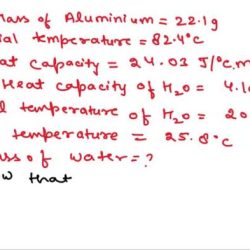 ass of Aluminium = 22.1g
ial temperature = 82.4°C
at capacity = 24.03 J/°C.m
Heat capacity of H₂O = 4.1
l temperature of H₂O = 20
temperature = 25.8°C
ass of water = ?
w that